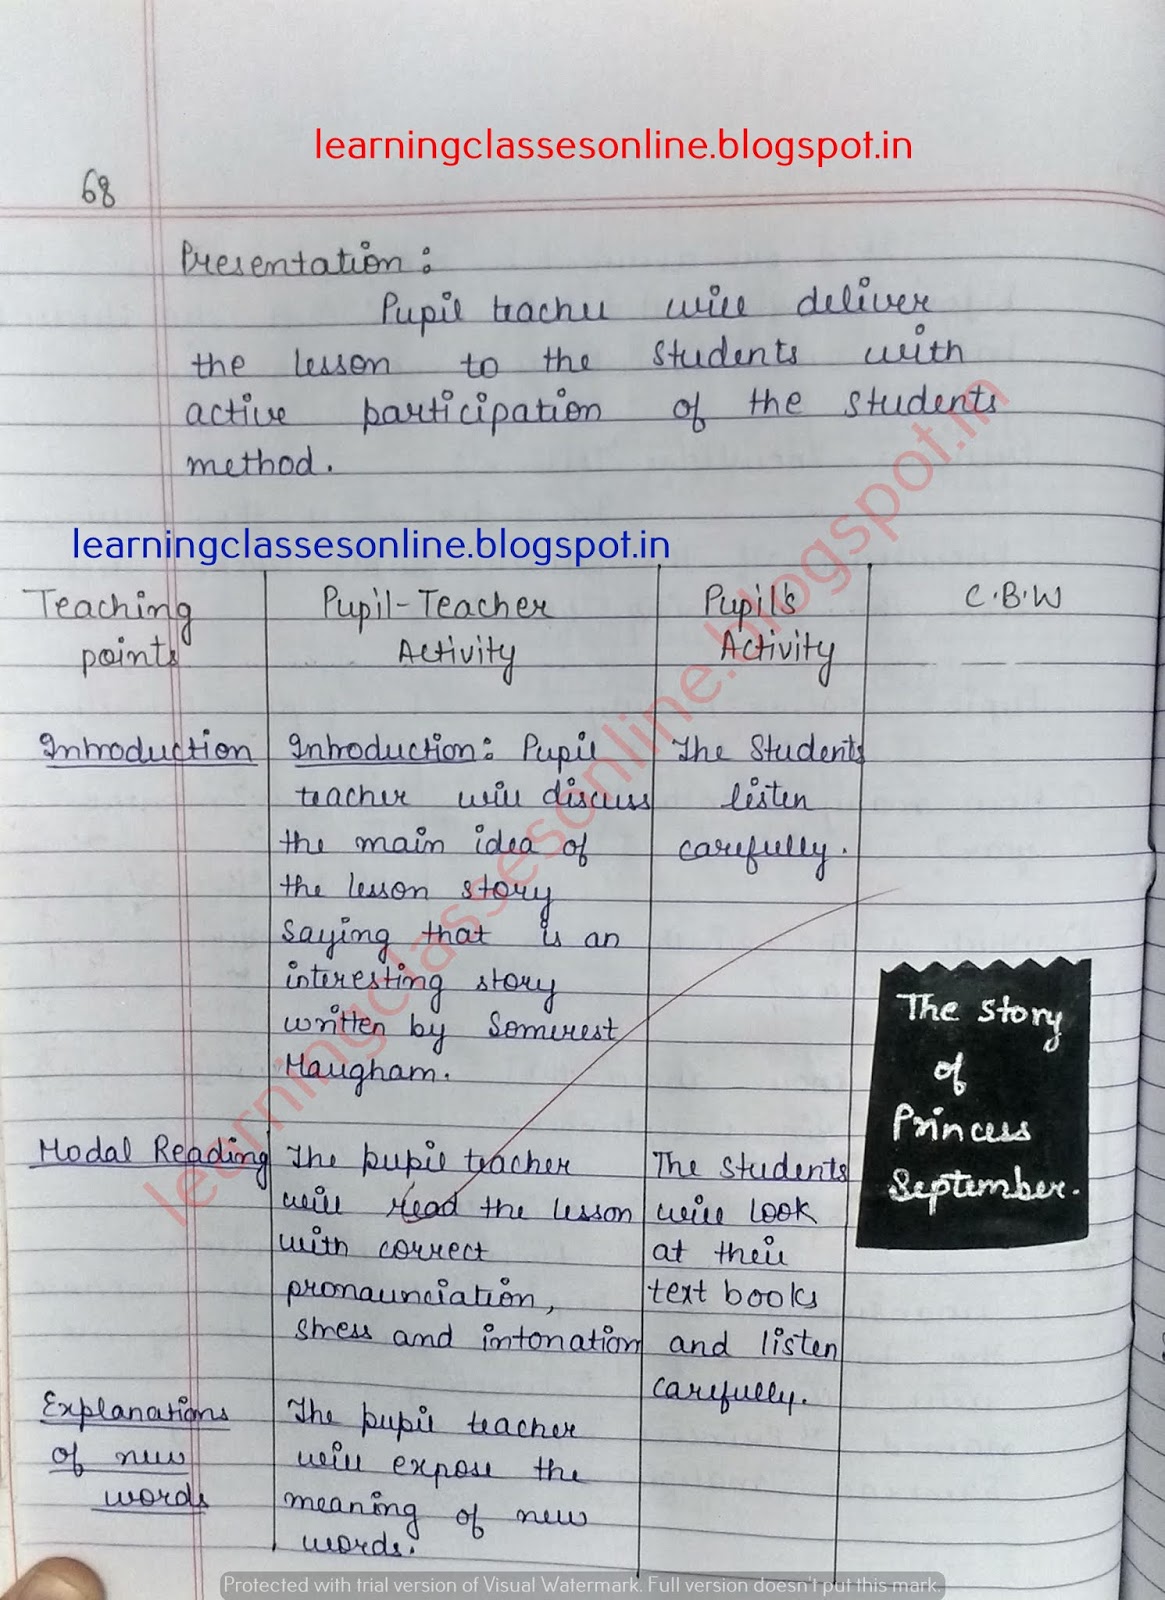 learningclassesonline.blogspot.in
68
Presentation :
Pupil teacher will deliver
the lesson to the students with
active participation of the students
method.
learningclassesonline.blogspot.in
Teaching
points
Pupil-Teacher
Activity
Pupil's
Activity
C.B.W
Introduction
Introduction: Pupil
teacher will discuss
the main idea of
the lesson story
saying that is an
interesting story
written by Somerest
Maugham.
The Students
listen
carefully.
The story
of
Princess
September.
Modal Reading
The pupil teacher
will read the lesson
with correct
pronaunciation,
stress and intonation
The students
will look
at their
text books
and listen
carefully.
Explanations
of new
words
The pupil teacher
will expose the
meaning of new
words.
learningclassesonline.blogspot.in
Protected with trial version of Visual Watermark. Full version doesn't put this mark.